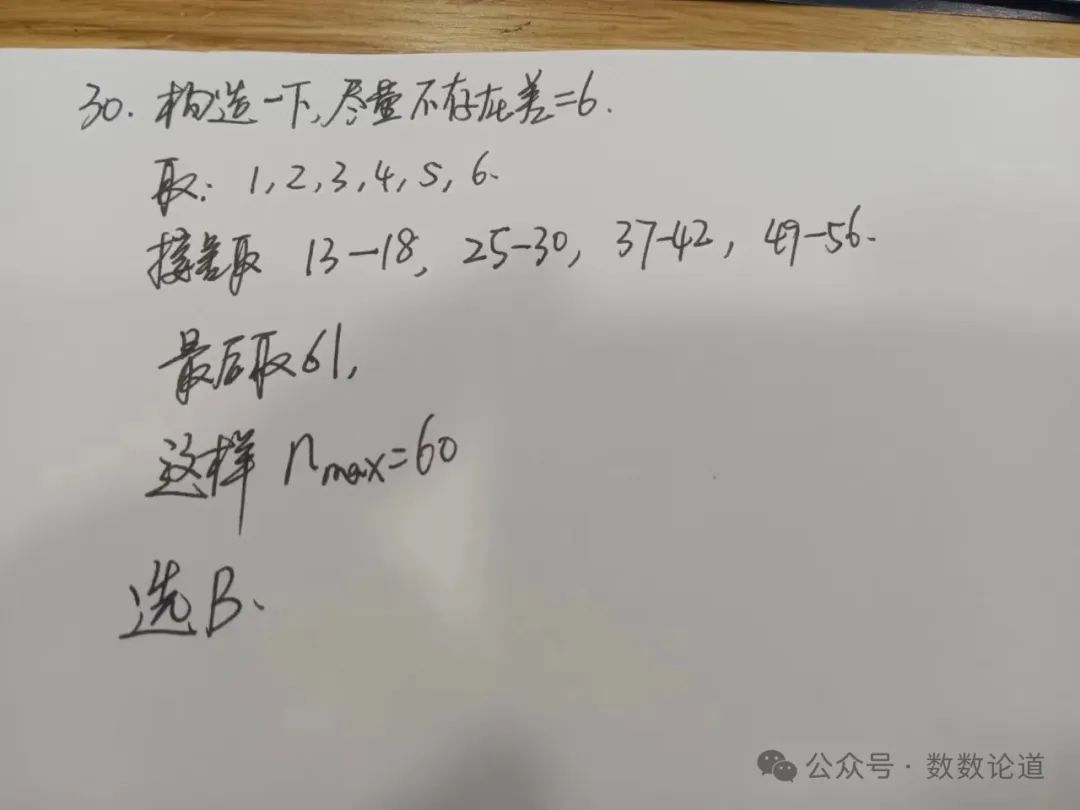 30. 构造一下,尽量不存在差=6.
取: 1,2,3,4,5,6.
接着取 13-18, 25-30, 37-42, 49-56.
最后取61,
这样 nmax=60
选B.
公众号·数数论道